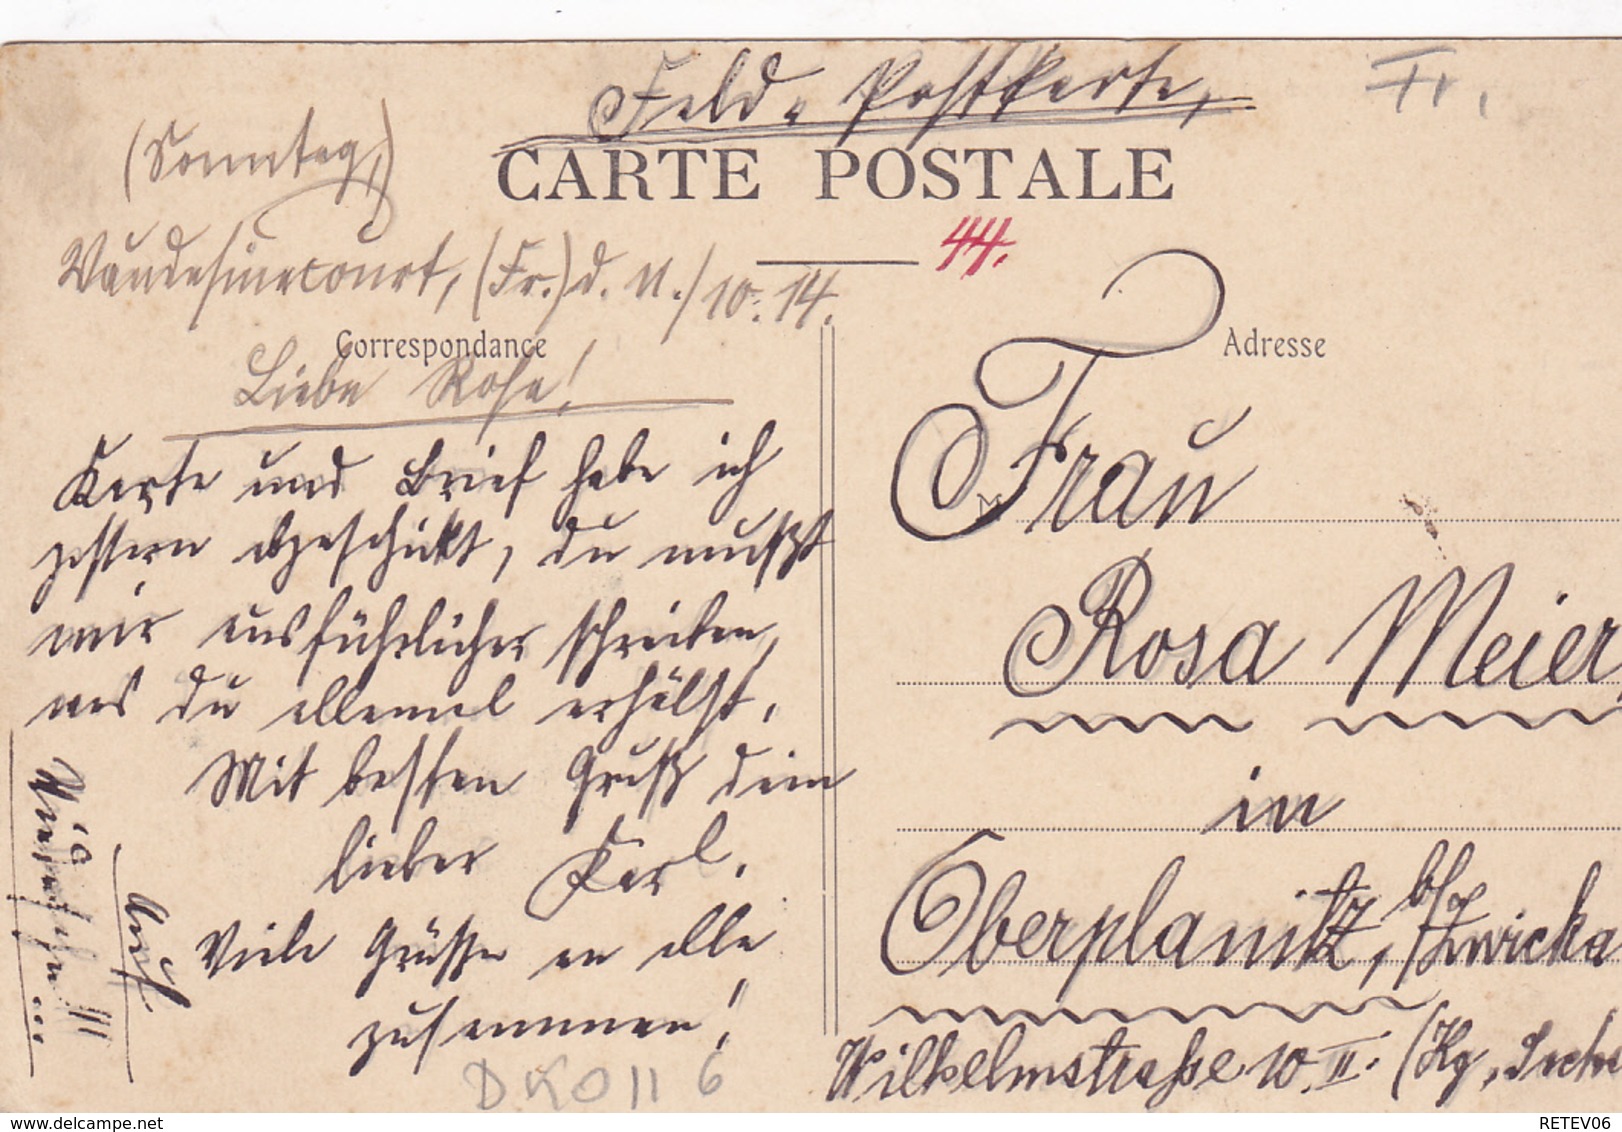 Feld-Postkarte,
Fr.
(Sonntag,)
CARTE POSTALE
44.
Vaudesincourt, (Fr.) d. 11./10. 14.
Correspondance
Adresse
Liebe Rosa!
Karte und Brief habe ich
gestern abgeschickt, du mußt
mir ausführlicher schreiben,
was du allemal erhälst.
Mit besten Gruß dein
lieber Karl.
Viele Grüße an alle
zusammen!
Auf
Wiedersehn!!!
M
Frau
Rosa Meier
in
Oberplanitz, b/Zwicka
Wilhelmstraße 10 II. (Kg. Sachs
DK011 6
delcampe.net
RETEV06